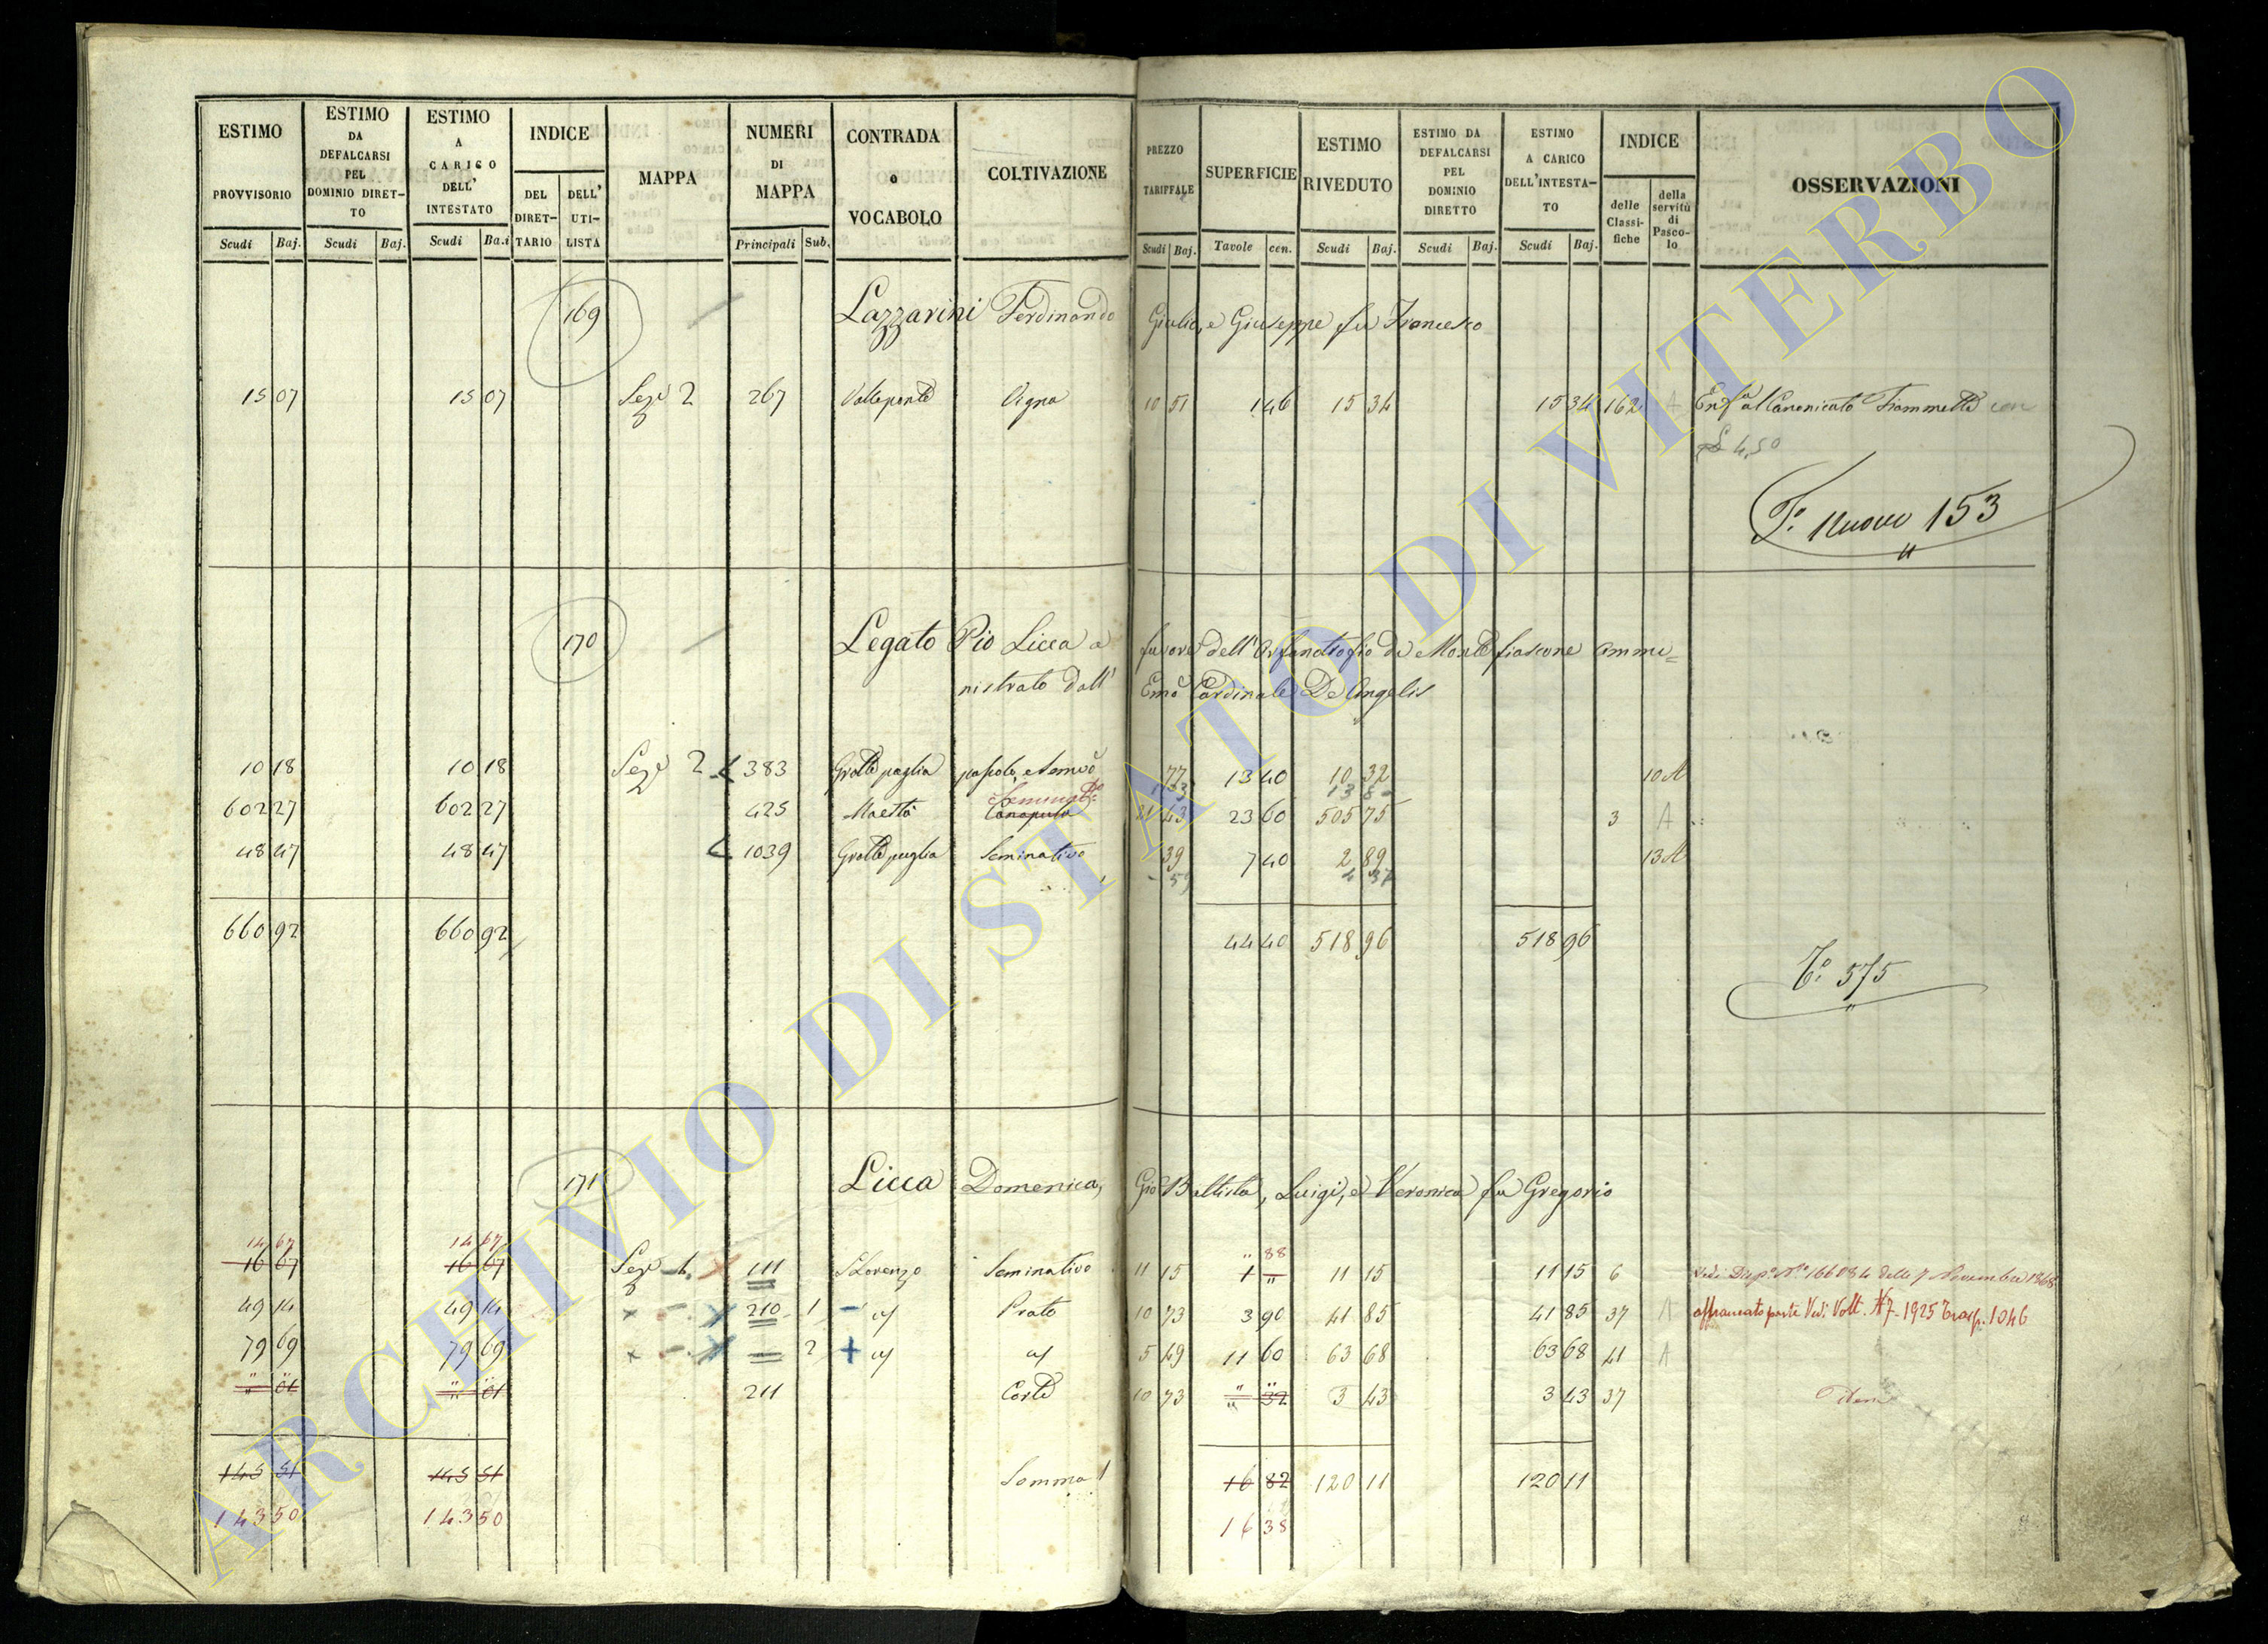 ESTIMO PROVVISORIO Scudi Baj.
ESTIMO DA DEFALCARSI PEL DOMINIO DIRET- TO Scudi Baj.
ESTIMO A CARICO DELL' INTESTATO Scudi Ba.i
INDICE DEL DIRET- TARIO DELL' UTI- LISTA
MAPPA
NUMERI DI MAPPA Principali Sub.
CONTRADA o VOCABOLO
COLTIVAZIONE
PREZZO TARIFFALE Scudi Baj.
SUPERFICIE Tavole cen.
ESTIMO RIVEDUTO Scudi Baj.
ESTIMO DA DEFALCARSI PEL DOMINIO DIRETTO Scudi Baj.
ESTIMO A CARICO DELL'INTESTA- TO Scudi Baj.
INDICE delle Classi- fiche della servitù di Pasco- lo
OSSERVAZIONI
169 Lazzarini Ferdinando Giulio, e Giuseppe fu Francesco
15 07 15 07 Seze 2 267 Valleponte Vigna 10 51 1 46 15 34 15 34 162 A Enfa al Canonicato Fiammetti con
4,50
To. nuovo 153
170 Legato Pio Licca a favore dell'Orfanotrofio di Montefiascone ammi=
nistrato dall' Emo Cardinale De Angelis
10 18 10 18 Seze 2 383 Grotte paglia pascolo, e Semvo 77 13 40 10 32 10 A
Seminato
602 27 602 27 425 Maestà Canapula 21 43 23 60 505 75 3 A
48 47 48 47 1039 Grotte puglia Seminativo 39 7 40 2 89 13 A
59 4 37
660 92 660 92 44 40 518 96 518 96
To. 575
171 Licca Domenica, Gio Battista, Luigi, e Veronica fu Gregorio
14 67 14 67 " 88
16 67 16 67 Seze 1. 111 S Lorenzo Seminativo 11 15 1 " 11 15 11 15 6 Vedi Disp. No 166084 delle 7 Novembre 1868
49 14 49 14 210 1 Prato 10 73 3 90 41 85 41 85 37 A affrancato parte Vedi Volt. N 7 - 1925 Trasp. 1046
79 69 79 69 2 5 49 11 60 63 68 63 68 41 A
" 01 " 01 211 Corte 10 73 " 32 3 43 3 43 37 Idem
145 51 145 51 Somma 16 82 120 11 120 11
143 50 143 50 16 38
ARCHIVIO DI STATO DI VITERBO